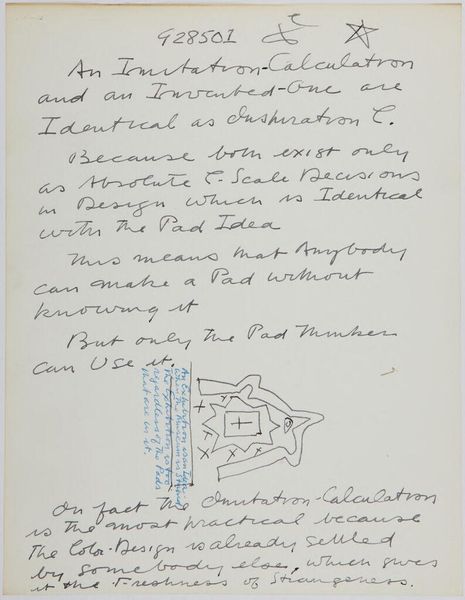 928501
An Imitation-Calculation
and an Invented-One are
Identical as Inspiration C.
Because both exist only
as Absolute C-Scale Decisions
in Design which is Identical
with the Pad Idea
This means that Anybody
can make a Pad without
knowing it
But only the Pad Thinker
can Use it.
An Exhibition is an
when the Museum is
the Exhibition is too
regardless of the Pads
that are in it.
In fact the Imitation-Calculation
is the most practical because
The Color-Design is already settled
by somebody else, which gives
it the Freshness of Strangeness.